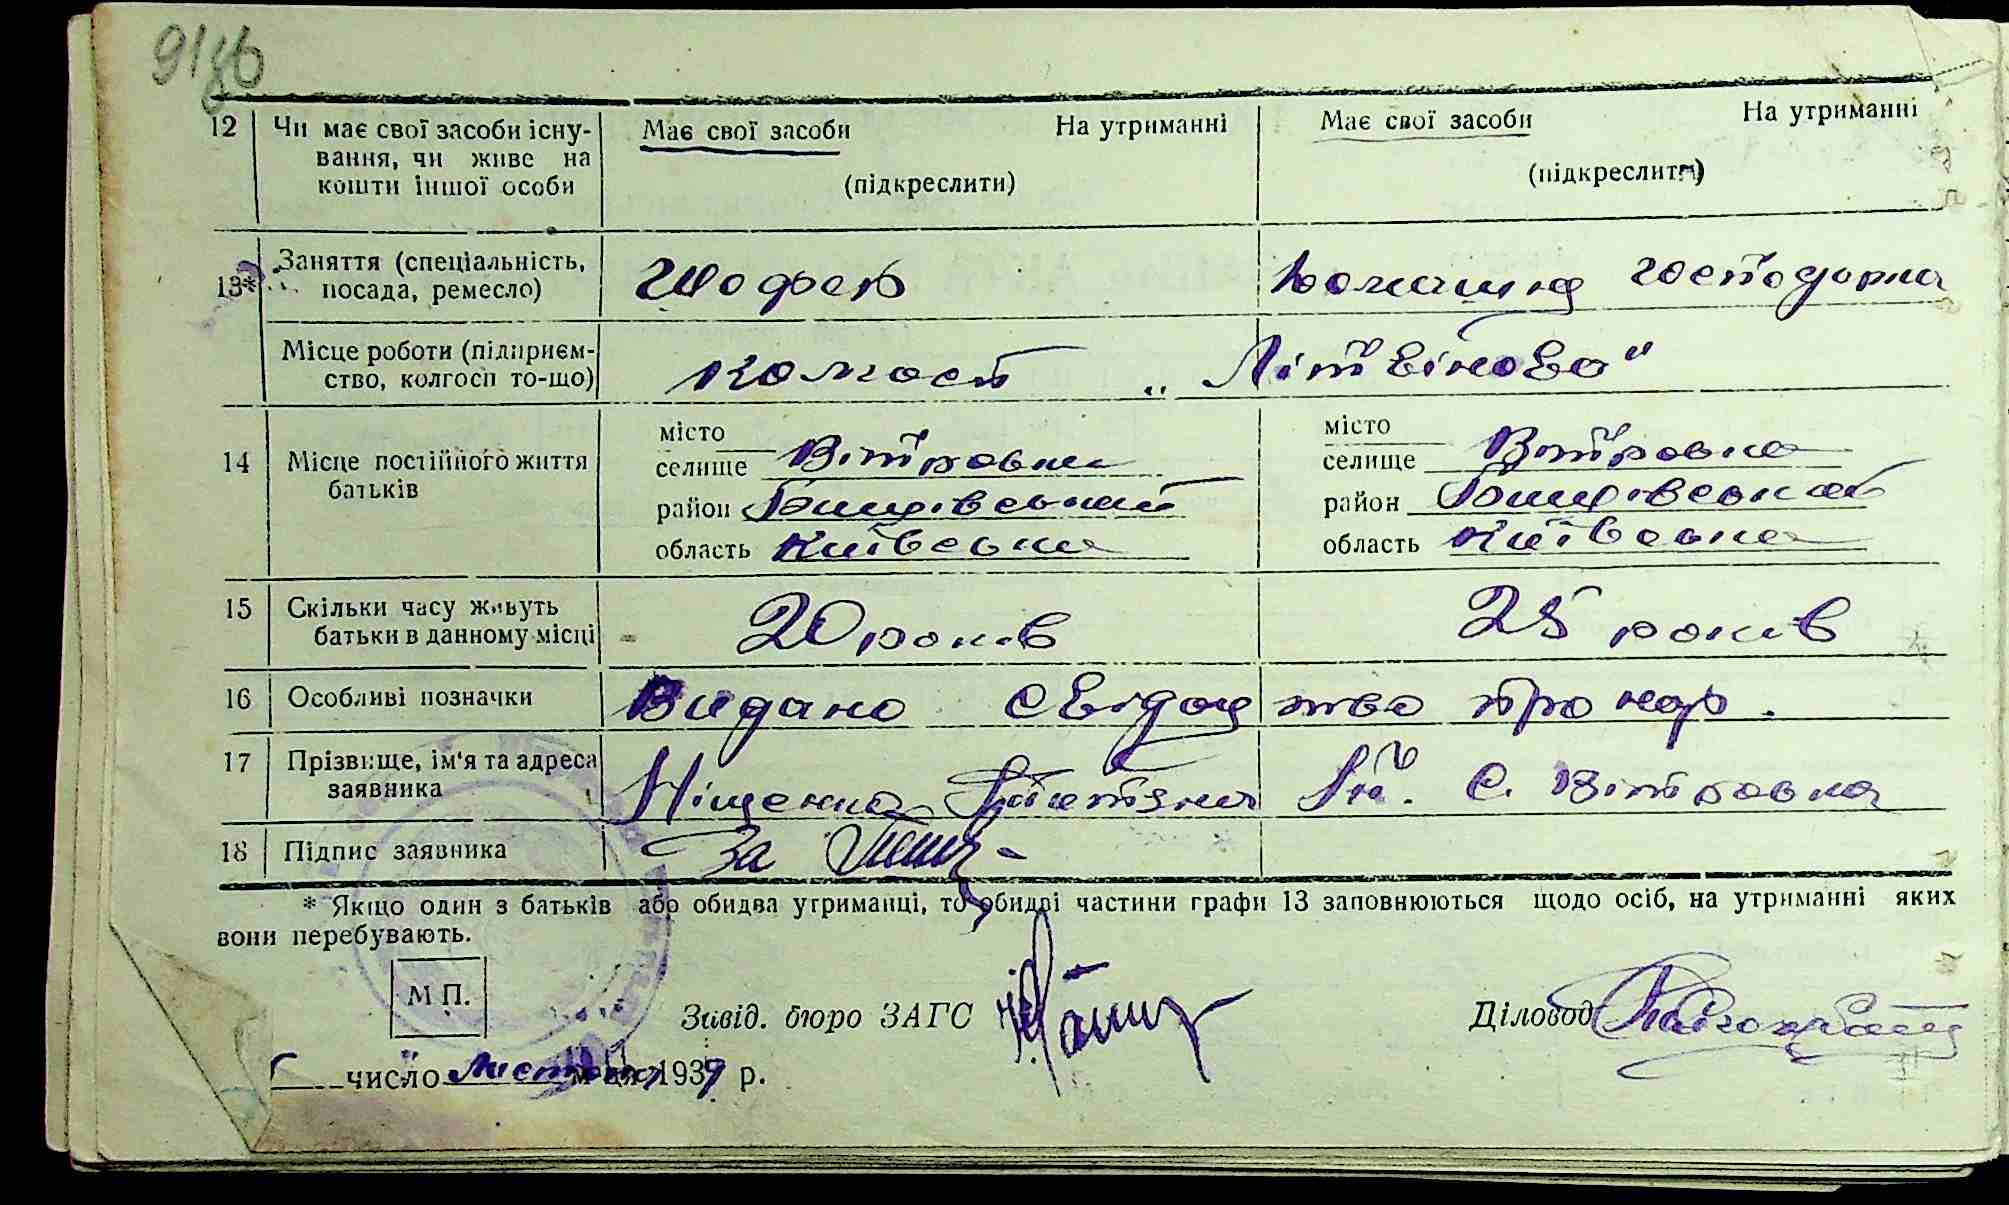 12 Чи має свої засоби існу- Має свої засоби На утриманні Має свої засоби На утриманні
вання, чи живе на
кошти іншої особи (підкреслити) (підкреслити)
13* Заняття (спеціальність, Шофер Домашня господарка
посада, ремесло)
Місце роботи (підприєм- колгосп „Літвіново"
ство, колгосп то-що)
14 Місце постійного життя місто місто
батьків селище Вітровка селище Вітровка
район район
область Київська область Київська
15 Скільки часу живуть 20 років 25 років
батьки в данному місці
16 Особливі позначки Видано свідоцтво про нар.
17 Прізвище, ім'я та адреса Ніщенко Тетяна с. Вітровка
заявника
18 Підпис заявника За
* Якщо один з батьків або обидва утриманці, то обидві частини графи 13 заповнюються щодо осіб, на утриманні яких
вони перебувають.
М П.
Завід. бюро ЗАГС Діловод
число м-ця 1939 р.